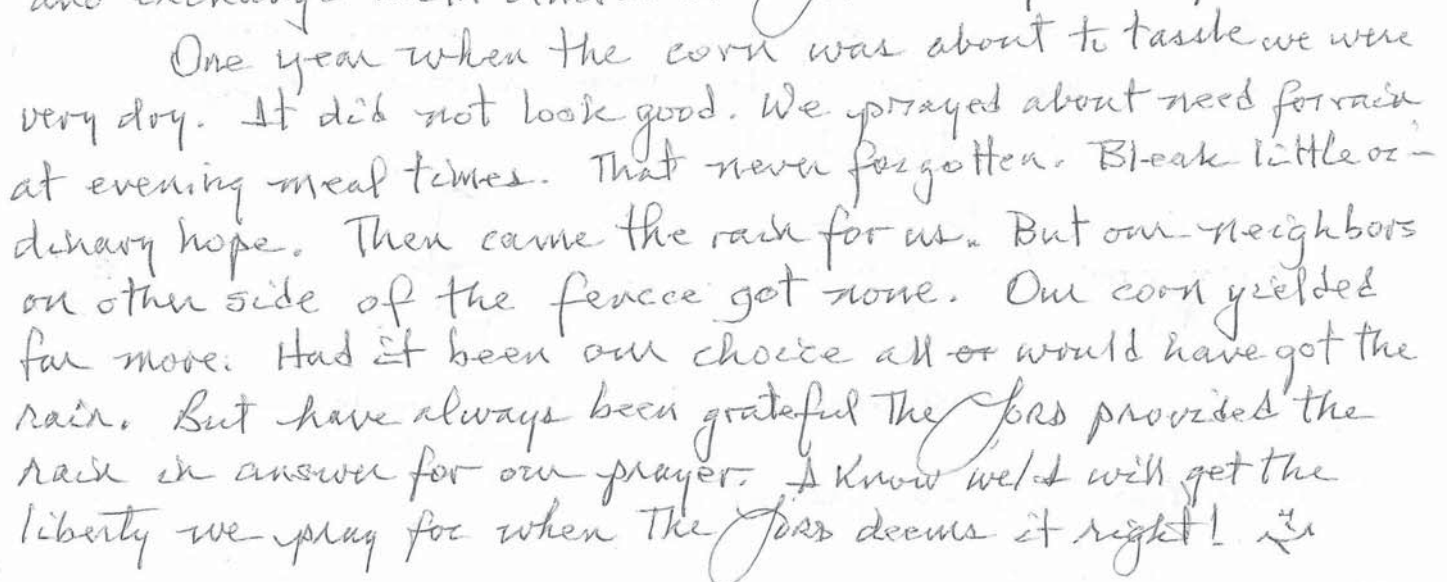 One year when the corn was about to tassle we were
very dry. It did not look good. We prayed about need for rain
at evening meal times. That never forgotten. Bleak little or-
dinary hope. Then came the rain for us. But our neighbors
on other side of the fencce got none. Our corn yielded
far more. Had it been our choice all or would have got the
rain. But have always been grateful The Lord provided the
rain in answer for our prayer. I know we/I will get the
liberty we pray for when The Lord deems it right!